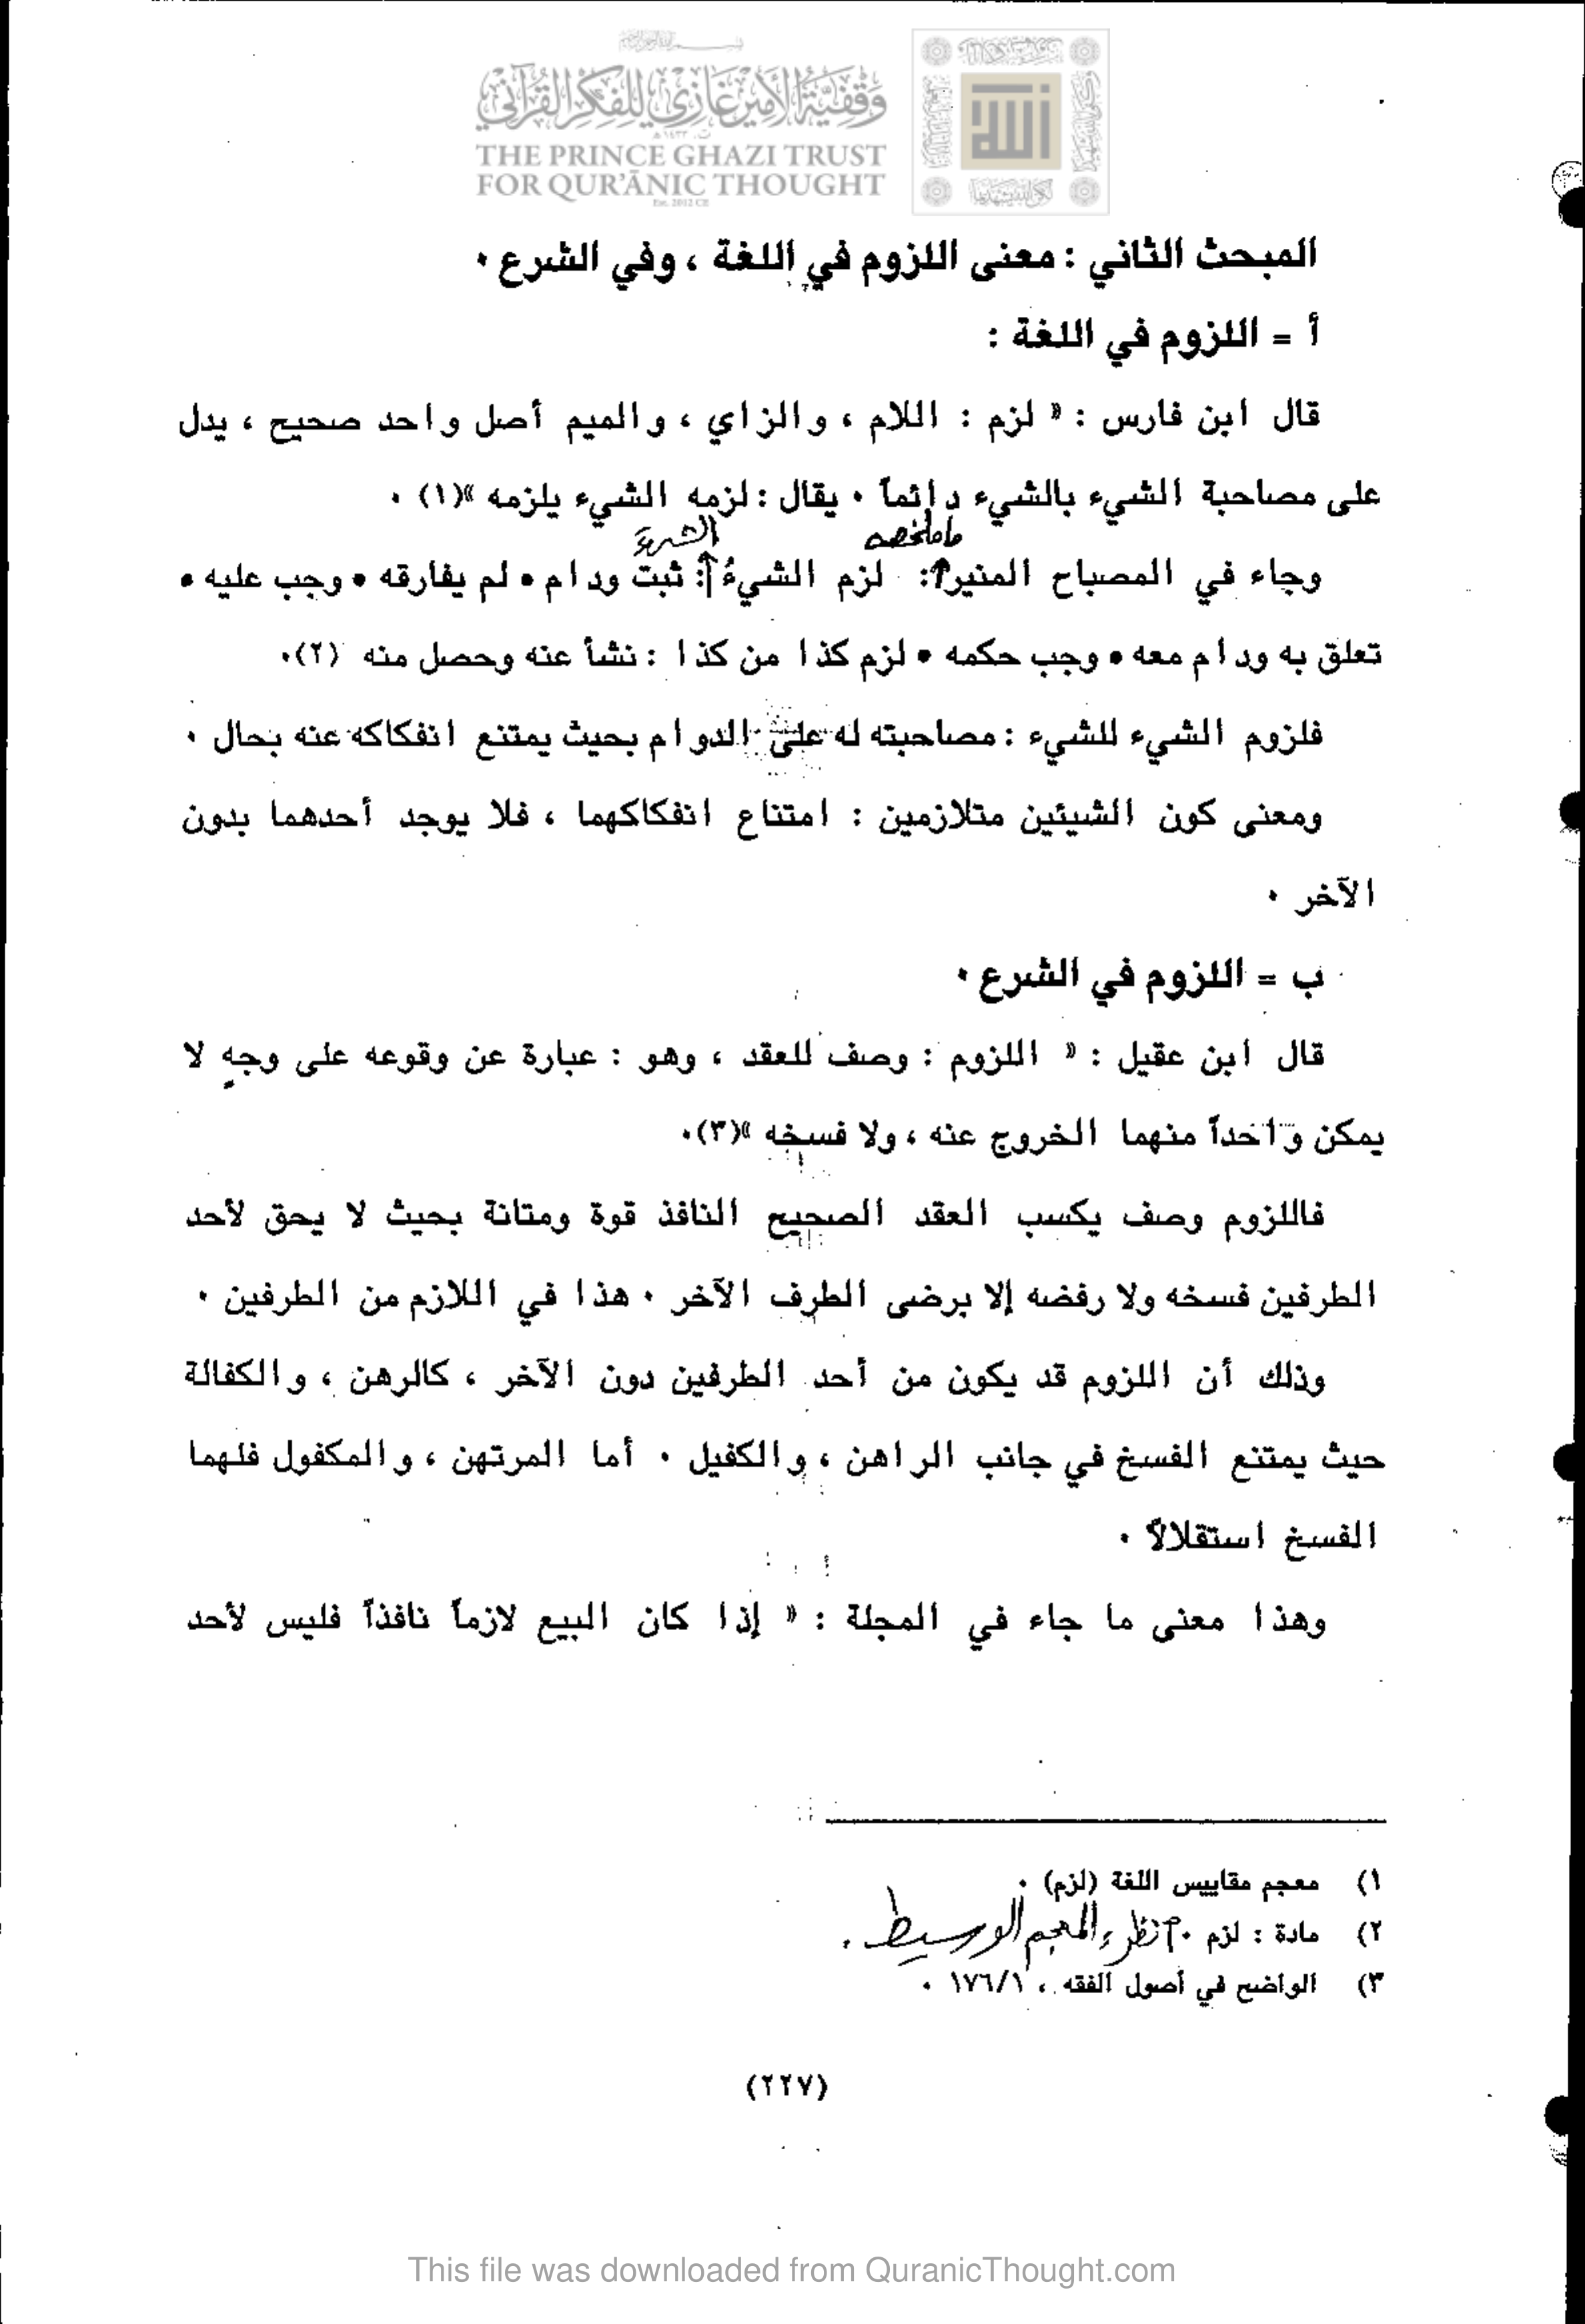 وقفية الأمير غازي للفكر القرآني
THE PRINCE GHAZI TRUST
FOR QUR'ĀNIC THOUGHT
Est. 2012 CE
المبحث الثاني : معنى اللزوم في اللغة ، وفي الشرع ٠
أ = اللزوم في اللغة :
قال ابن فارس : « لزم : اللام ، والزاي ، والميم أصل واحد صحيح ، يدل
على مصاحبة الشيء بالشيء دائماً ٠ يقال : لزمه الشيء يلزمه »(١) ٠
ما ملخصه الشيءَ
وجاء في المصباح المنير : لزم الشيءُ : ثبت ودام • لم يفارقه • وجب عليه •
تعلق به ودام معه • وجب حكمه • لزم كذا من كذا : نشأ عنه وحصل منه (٢)٠
فلزوم الشيء للشيء : مصاحبته له على الدوام بحيث يمتنع انفكاكه عنه بحال ٠
ومعنى كون الشيئين متلازمين : امتناع انفكاكهما ، فلا يوجد أحدهما بدون
الآخر ٠
ب = اللزوم في الشرع ٠
قال ابن عقيل : « اللزوم : وصف للعقد ، وهو : عبارة عن وقوعه على وجهٍ لا
يمكن واحداً منهما الخروج عنه ، ولا فسخه »(٣)٠
فاللزوم وصف يكسب العقد الصحيح النافذ قوة ومتانة بحيث لا يحق لأحد
الطرفين فسخه ولا رفضه إلا برضى الطرف الآخر ٠ هذا في اللازم من الطرفين ٠
وذلك أن اللزوم قد يكون من أحد الطرفين دون الآخر ، كالرهن ، والكفالة
حيث يمتنع الفسخ في جانب الراهن ، والكفيل ٠ أما المرتهن ، والمكفول فلهما
الفسخ استقلالاً ٠
وهذا معنى ما جاء في المجلة : « إذا كان البيع لازماً نافذاً فليس لأحد
١) معجم مقاييس اللغة (لزم) ٠
٢) مادة : لزم ٠ انظر، المعجم الوسيط .
٣) الواضح في أصول الفقه ، ١٧٦/١ ٠
(٢٢٧)
This file was downloaded from QuranicThought.com